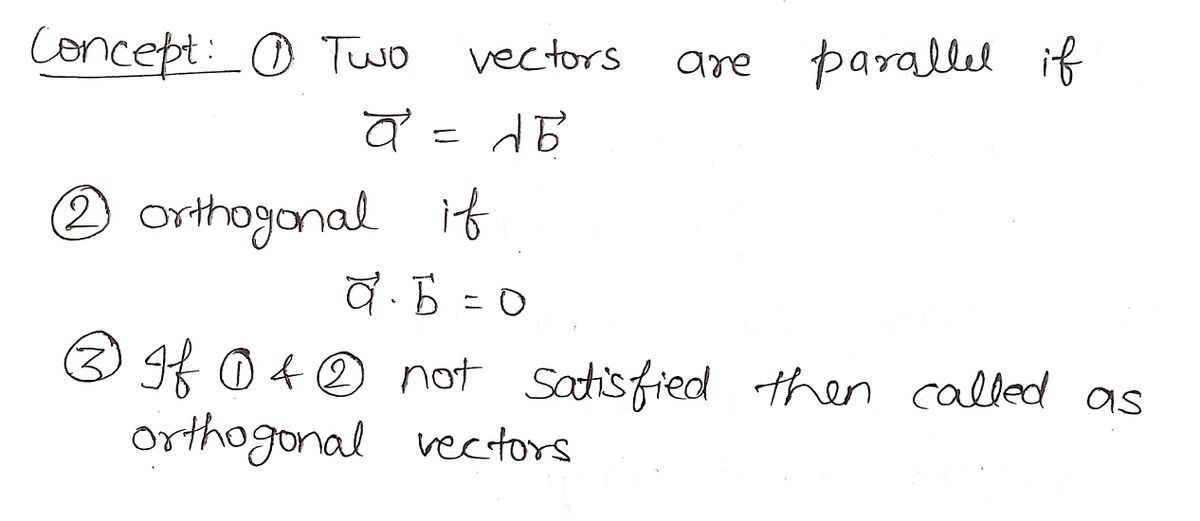 Concept: ① Two vectors are parallel if
a⃗ = λb⃗
② orthogonal if
a⃗ . b⃗ = 0
③ If ① & ② not satisfied then called as
orthogonal vectors